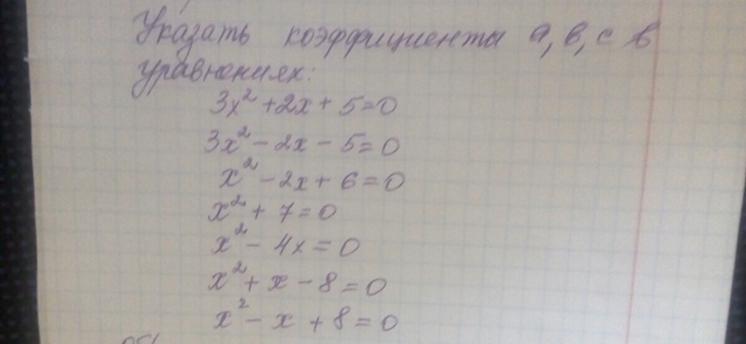 Указать коэффициенты а, в, с в
уравнениях:
3x² + 2x + 5 = 0
3x² - 2x - 5 = 0
x² - 2x + 6 = 0
x² + 7 = 0
x² - 4x = 0
x² + x - 8 = 0
x² - x + 8 = 0